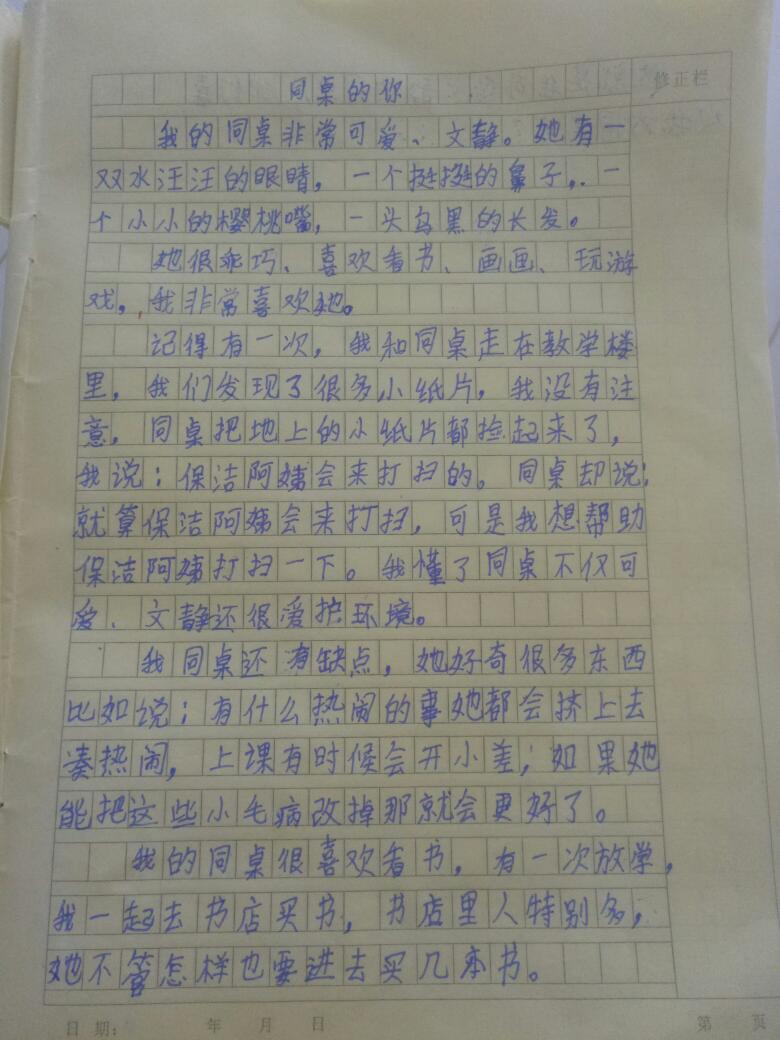 修正栏
同桌的你
我的同桌非常可爱、文静。她有一
双水汪汪的眼睛,一个挺挺的鼻子,一
个小小的樱桃嘴,一头乌黑的长发。
她很乖巧、喜欢看书、画画、玩游
戏,我非常喜欢她。
记得有一次,我和同桌走在教学楼
里,我们发现了很多小纸片,我没有注
意,同桌把地上的小纸片都捡起来了,
我说:保洁阿姨会来打扫的。同桌却说:
就算保洁阿姨会来打扫,可是我想帮助
保洁阿姨打扫一下。我懂了同桌不仅可
爱、文静还很爱护环境。
我同桌还有缺点,她好奇很多东西
比如说:有什么热闹的事她都会挤上去
凑热闹,上课有时候会开小差;如果她
能把这些小毛病改掉那就会更好了。
我的同桌很喜欢看书,有一次放学,
我一起去书店买书,书店里人特别多,
她不管怎样也要进去买几本书。
日期: 年 月 日 第 页